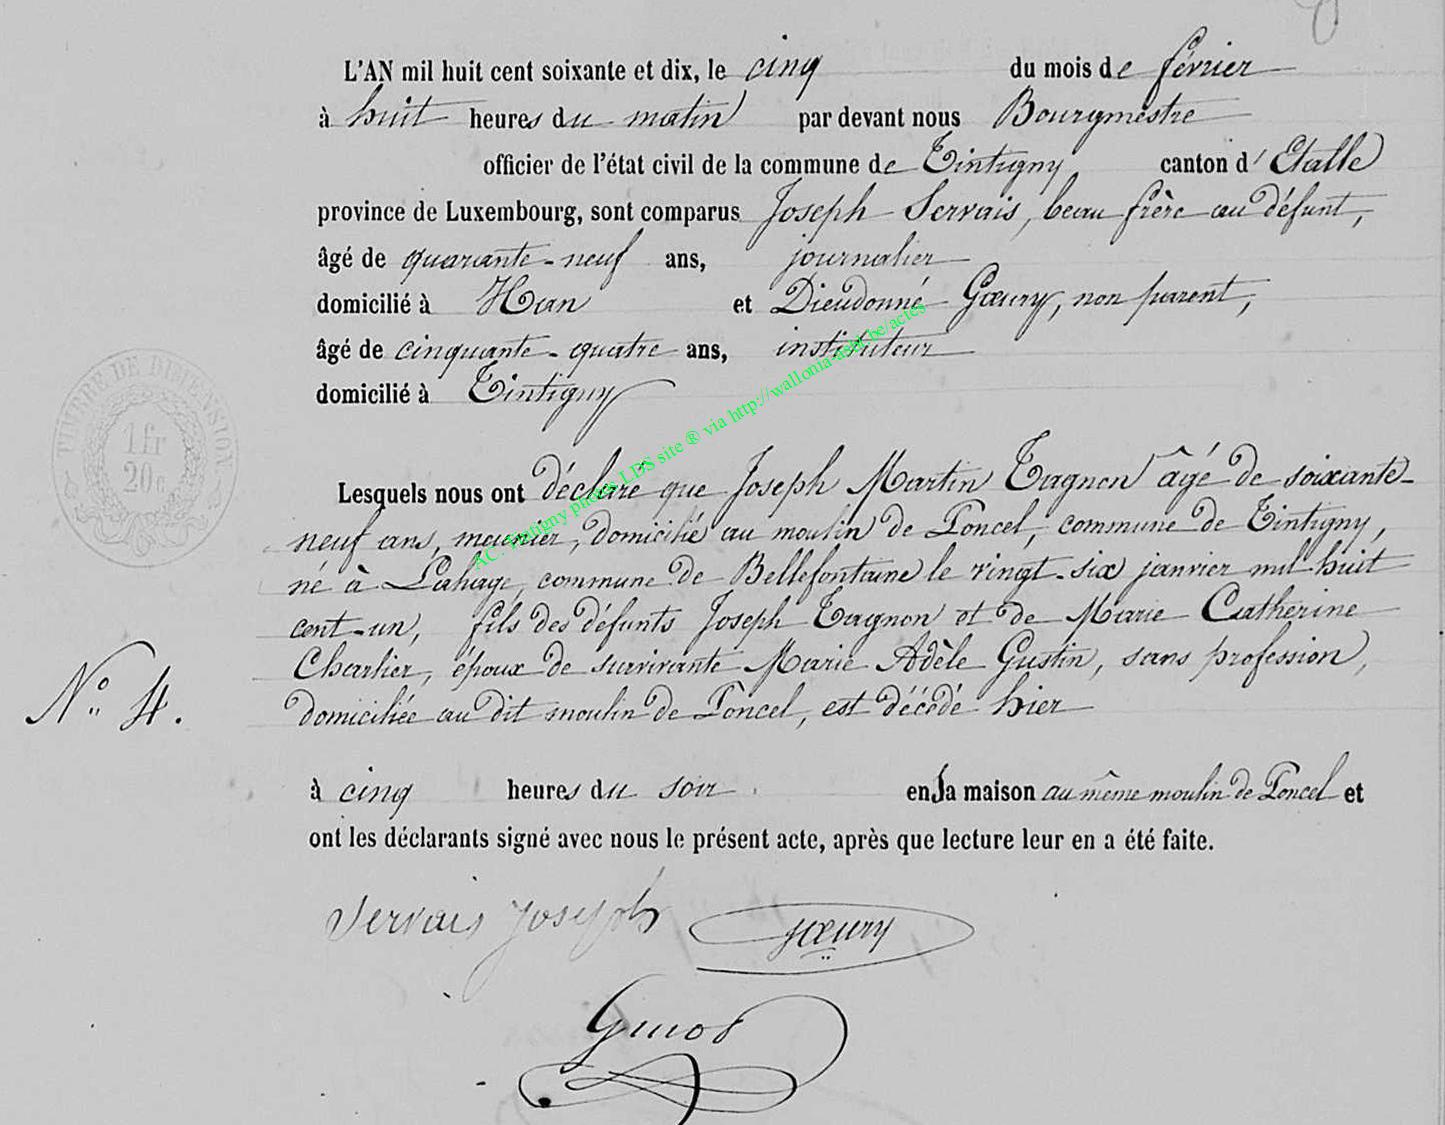 L'AN mil huit cent soixante et dix, le cinq du mois de février
à huit heures du matin par devant nous Bourgmestre
officier de l'état civil de la commune de Tintigny canton d' Etalle
province de Luxembourg, sont comparus Joseph Servais, beau frère au défunt,
âgé de quarante-neuf ans, journalier
domicilié à Han et Dieudonné Gœury, non parent,
âgé de cinquante-quatre ans, instituteur
domicilié à Tintigny
TIMBRE DE DIMENSION
1 fr
20 c
Lesquels nous ont déclaré que Joseph Martin Tagnon âgé de soixante-
neuf ans, meunier, domicilié au moulin de Poncel, commune de Tintigny,
né à Lahage, commune de Bellefontaine le vingt-six janvier mil huit
cent-un, fils des défunts Joseph Tagnon et de Marie Catherine
Charlier, époux de survivante Marie Adèle Gustin, sans profession,
N° 4.
domiciliée au dit moulin de Poncel, est décédé hier
à cinq heures du soir en la maison au même moulin de Poncel et
ont les déclarants signé avec nous le présent acte, après que lecture leur en a été faite.
Servais Joseph gœury
AC. Tintigny photos LDS site ® via http://wallonia-asbl.be/actes